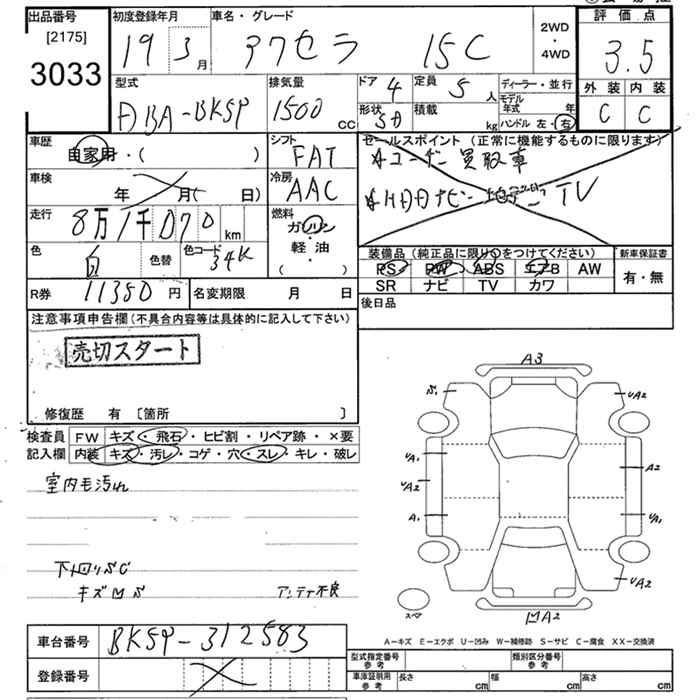 出品番号
[2175]
3033
初度登録年月
19 3月
車名・グレード
アクセラ 15C
2WD
・
4WD
評価点
3.5
外装 内装
C C
型式
DBA-BK5P
排気量
1500 CC
ドア 4
定員 5 人
形状 5D
積載 kg
ディーラー・並行
モデル年式 年
ハンドル 左・右
車歴
自家用・( )
シフト
FAT
セールスポイント (正常に機能するものに限ります)
☆ユーザー買取車
☆HDDナビ TV
車検
年 月( 日)
冷房
AAC
走行
8万1千070 km
燃料
ガソリン
軽・油
( )
色
白
色替
色コード
34K
装備品 (純正品に限り○をつけてください)
PS PW ABS エアB AW
SR ナビ TV カワ
新車保証書
有・無
R券 11380 円
名変期限 月 日
後日品
注意事項申告欄 (不具合内容等は具体的に記入して下さい)
売切スタート
修復歴 有 [箇所 ]
検査員 FW キズ・飛石・ヒビ割・リペア跡・×要
記入欄 内装 キズ・汚レ・コゲ・穴・スレ・キレ・破レ
室内毛汚れ
下回りSC
キズ凹S
アンテナ不良
A3
S1 UA2
UA1 A2
UA2
A1 U/A1
UA2
スペア
凹A2
A-キズ E-エクボ U-凹み W-補修跡 S-サビ C-腐食 XX-交換済
車台番号 BK5P-312583
登録番号
型式指定番号 参考
類別区分番号 参考
車庫証明用 参考
長さ cm
幅 cm
高さ cm